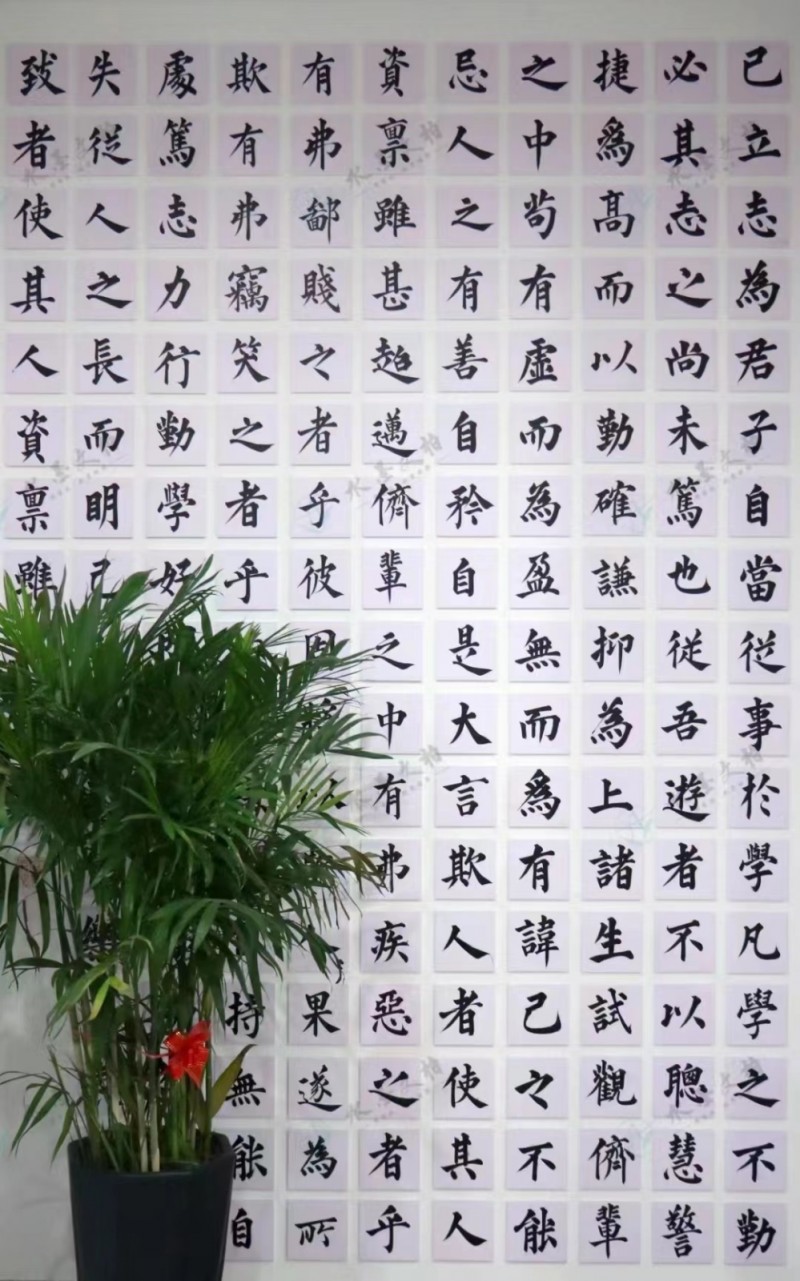 已立志為君子自當従事於學凡學之不勤
必其志之尚未篤也従吾遊者不以聰慧警
捷爲高而以勤確謙抑為上諸生試觀儕輩
之中苟有虛而為盈無而爲有諱己之不能
忌人之有善自矜自是大言欺人者使其人
資稟雖甚超邁儕輩之中有弗疾惡之者乎
有弗鄙賤之者乎彼固果遂為所
欺有弗竊笑之者乎持無能自
處篤志力行勤學好
失従人之長而明己
致者使其人資稟雖